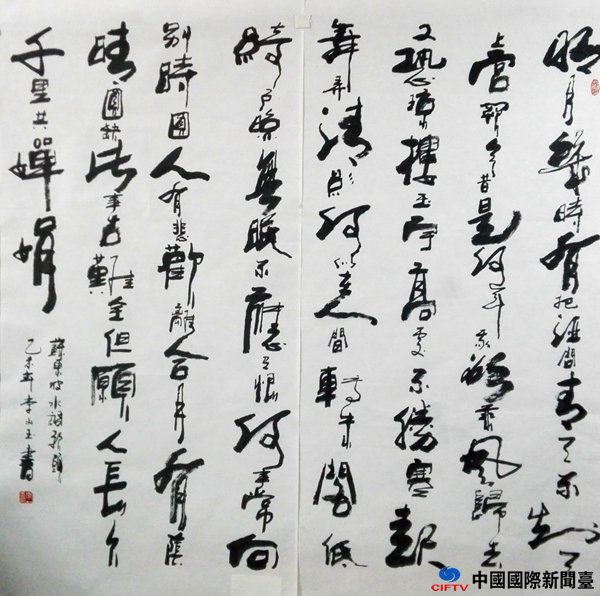 明月幾時有把酒問青天不知天
上宮闕今昔是何年我欲乘風歸去
又恐瓊樓玉宇高處不勝寒起
舞弄清影何似在人間轉朱閣低
綺戶照無眠不應有恨何事常向
別時圓人有悲歡離合月有陰
晴圓缺此事古難全但願人長久
千里共嬋娟
蘇東坡水調歌頭
乙未年李 書
CIFTV 中國國際新聞臺